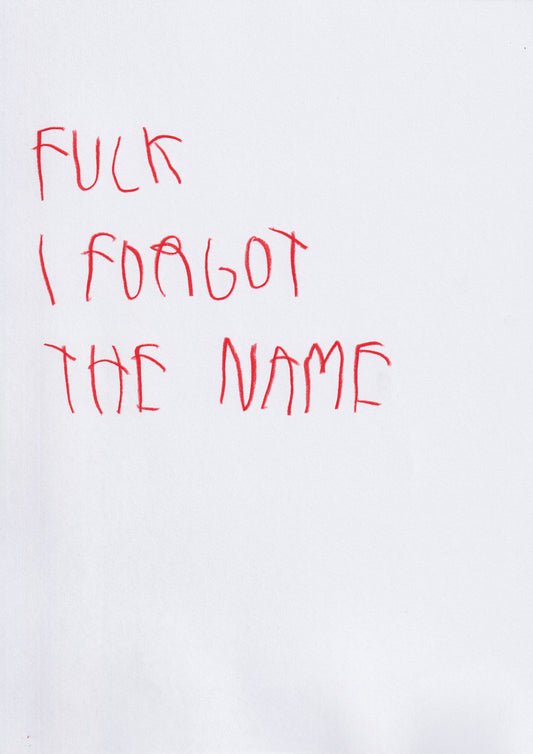 FUCK
I FORGOT
THE NAME